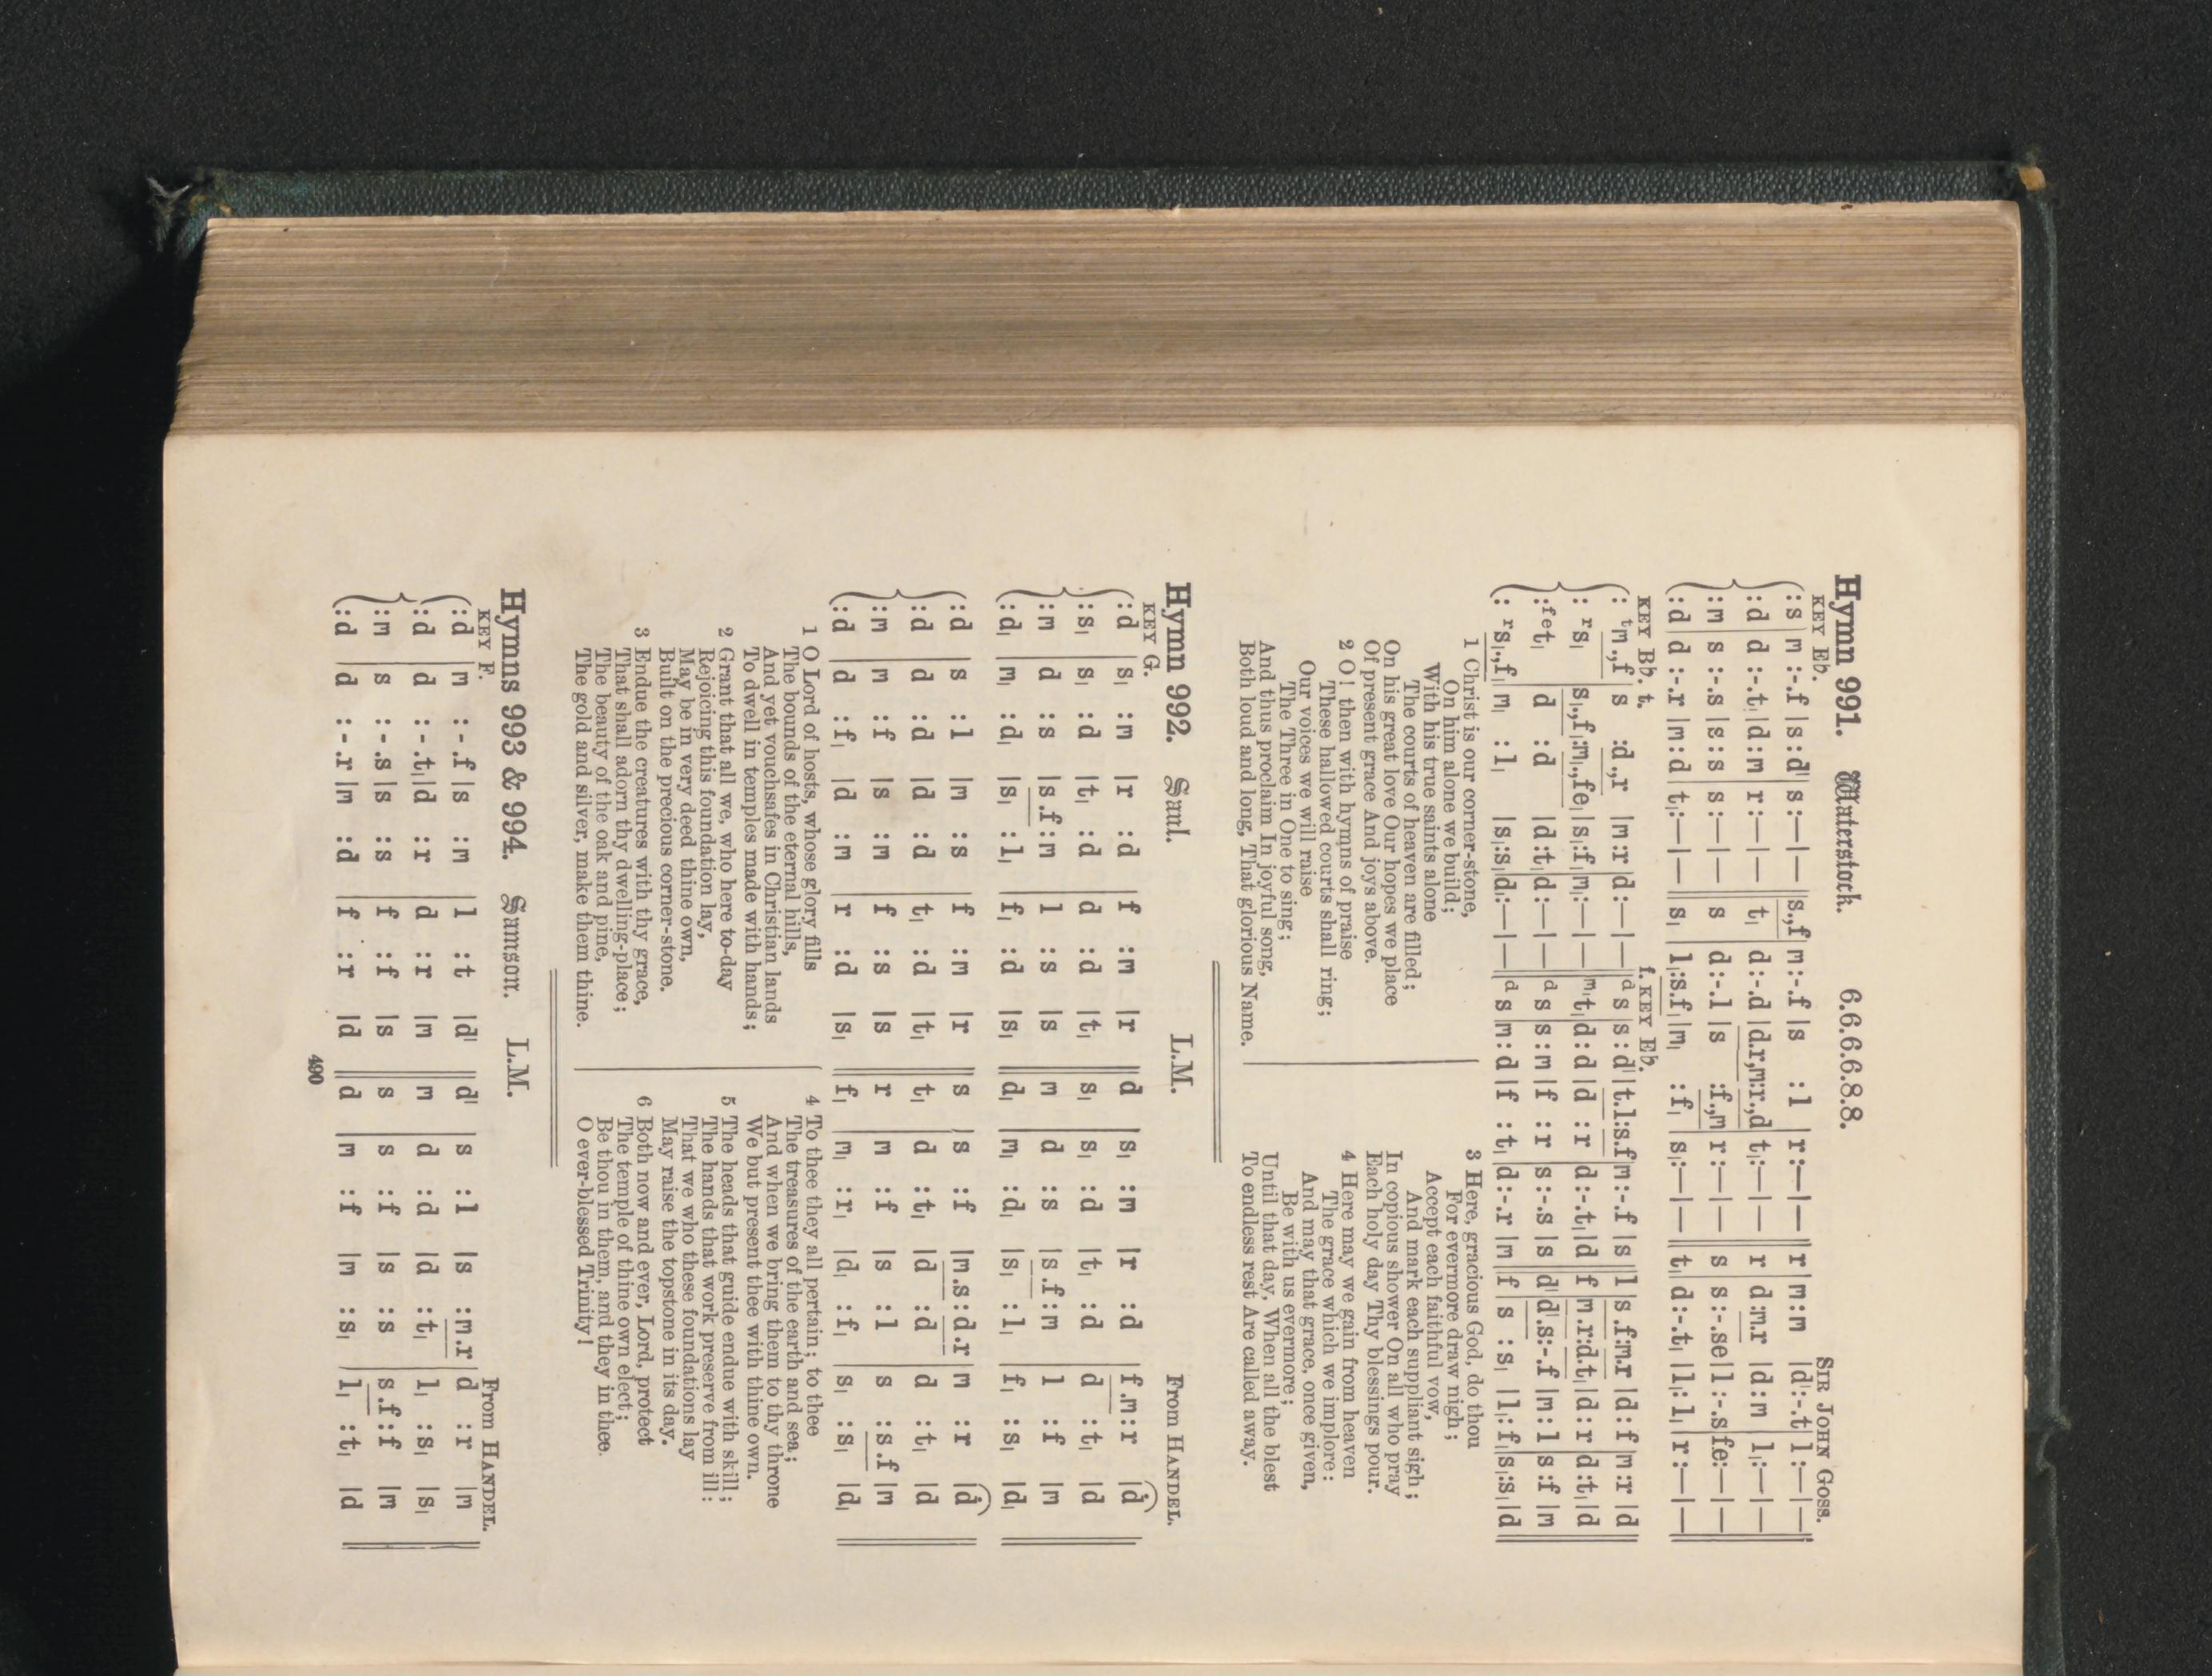 Hymn 991. Waterstock. 6.6.6.6.8.8.
KEY E♭. SIR JOHN GOSS.
:s | m :-.f | s :d' | s :— | — || s.,f | m :-.f | s :l | r :— | — || r | m :m | d' :-.t | l :— | —
:d | d :-.t, | d :m | r :— | — || t, | d :-.d | d.r,m:r.,d | t, :— | — || r | d :m.r | d :m | l, :— | —
:m | s :-.s | s :s | s :— | — || s | d :-.l | s :f.,m | r :— | — || s | s :-.se | l :-.s | fe :— | —
:d | d :-.r | m :d | t, :— | — || s, | l, :s,.f, | m, :f, | s, :— | — || t, | d :-.t, | l, :l, | r :— | —
KEY B♭. t. f. KEY E♭.
: ᵗm.,f | s :d.,r | m :r | d :— | — || ᵈs | s :d' | t.l :s.f | m :-.f | s || l | s.f :m.r | d :f | m :r | d
: ʳs, | s,.,f, :m,.,fe, | s, :f, | m, :— | — || ᵐt, | d :d | d :r | d :-.t, | d || f | m.r :d.t, | d :r | d :t, | d
: ᶠᵉt, | d :d | d :t, | d :— | — || ᵈs | s :m | f :r | s :-.s | s || d' | d'.s :-.f | m :l | s :f | m
: ʳs,.,f, | m, :l, | s, :s, | d, :— | — || ᵈs | m :d | f :t, | d :-.r | m || f | s :s, | l, :f, | s, :s, | d
1 Christ is our corner-stone,
On him alone we build;
With his true saints alone
The courts of heaven are filled;
On his great love Our hopes we place
Of present grace And joys above.
2 O! then with hymns of praise
These hallowed courts shall ring;
Our voices we will raise
The Three in One to sing;
And thus proclaim In joyful song,
Both loud and long, That glorious Name.
3 Here, gracious God, do thou
For evermore draw nigh;
Accept each faithful vow,
And mark each suppliant sigh;
In copious shower On all who pray
Each holy day Thy blessings pour.
4 Here may we gain from heaven
The grace which we implore:
And may that grace, once given,
Be with us evermore;
Until that day, When all the blest
To endless rest Are called away.
Hymn 992. Saul. L.M.
KEY G. From HANDEL.
:d | s, :m | r :d | f :m | r || d | s, :m | r :d | f.m :r | d
:s, | s, :d | t, :d | d :d | t, || s, | s, :d | t, :d | d :t, | d
:m | d :s | s.f :m | l :s | s || m | d :s | s.f :m | l :f | m
:d, | m, :d, | s, :l, | f, :d | s, || d, | m, :d, | s, :l, | f, :s, | d,
:d | s :l | m :s | f :m | r || s | s :f | m.s :d.r | m :r | d
:d | d :d | d :d | t, :d | t, || t, | d :t, | d :d | d :t, | d
:m | m :f | s :m | f :s | s || r | m :f | s :l | s :s.f | m
:d | d :f, | d :m | r :d | s, || f, | m, :r, | d, :f, | s, :s, | d,
1 O Lord of hosts, whose glory fills
The bounds of the eternal hills,
And yet vouchsafes in Christian lands
To dwell in temples made with hands;
2 Grant that all we, who here to-day
Rejoicing this foundation lay,
May be in very deed thine own,
Built on the precious corner-stone.
3 Endue the creatures with thy grace,
That shall adorn thy dwelling-place;
The beauty of the oak and pine,
The gold and silver, make them thine.
4 To thee they all pertain; to thee
The treasures of the earth and sea;
And when we bring them to thy throne
We but present thee with thine own.
5 The heads that guide endue with skill;
The hands that work preserve from ill:
That we who these foundations lay
May raise the topstone in its day.
6 Both now and ever, Lord, protect
The temple of thine own elect;
Be thou in them, and they in thee.
O ever-blessed Trinity!
Hymns 993 & 994. Samson. L.M.
KEY F. From HANDEL.
:d | m :-.f | s :m | l :t | d' || d' | s :l | s :m.r | d :r | m
:d | d :-.t, | d :r | d :r | m || m | d :d | d :t, | l, :s, | s,
:m | s :-.s | s :s | f :f | s || s | s :f | s :s | s.f :f | m
:d | d :-.r | m :d | f :r | d || d | m :f | m :s, | l, :t, | d
490